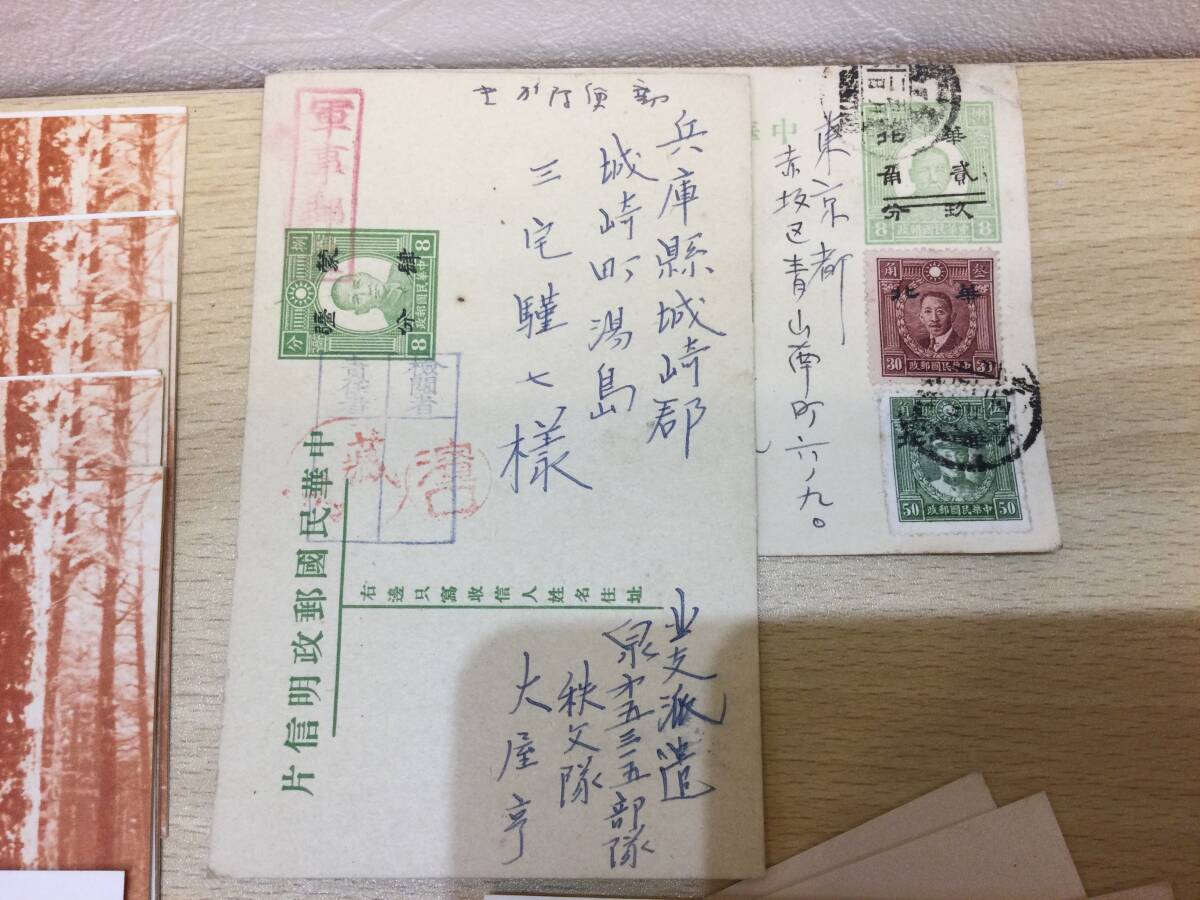 軍事郵
兵庫縣城崎郡
城崎町湯島
三宅驥七樣
8 8
中華民國郵政
肆分
檢閱者
責任者
藏
中華民國郵政明信片
右邊只寫收信人姓名住址
北支派遣
泉第五三一五部隊
秩父隊
大屋亨
中華
東京都
赤坂区青山南町六ノ九。
華北
貳角
玖分
8 8
中華民國郵政
叁角
華北
30 30
中華民國郵政
50 50
中華民國郵政